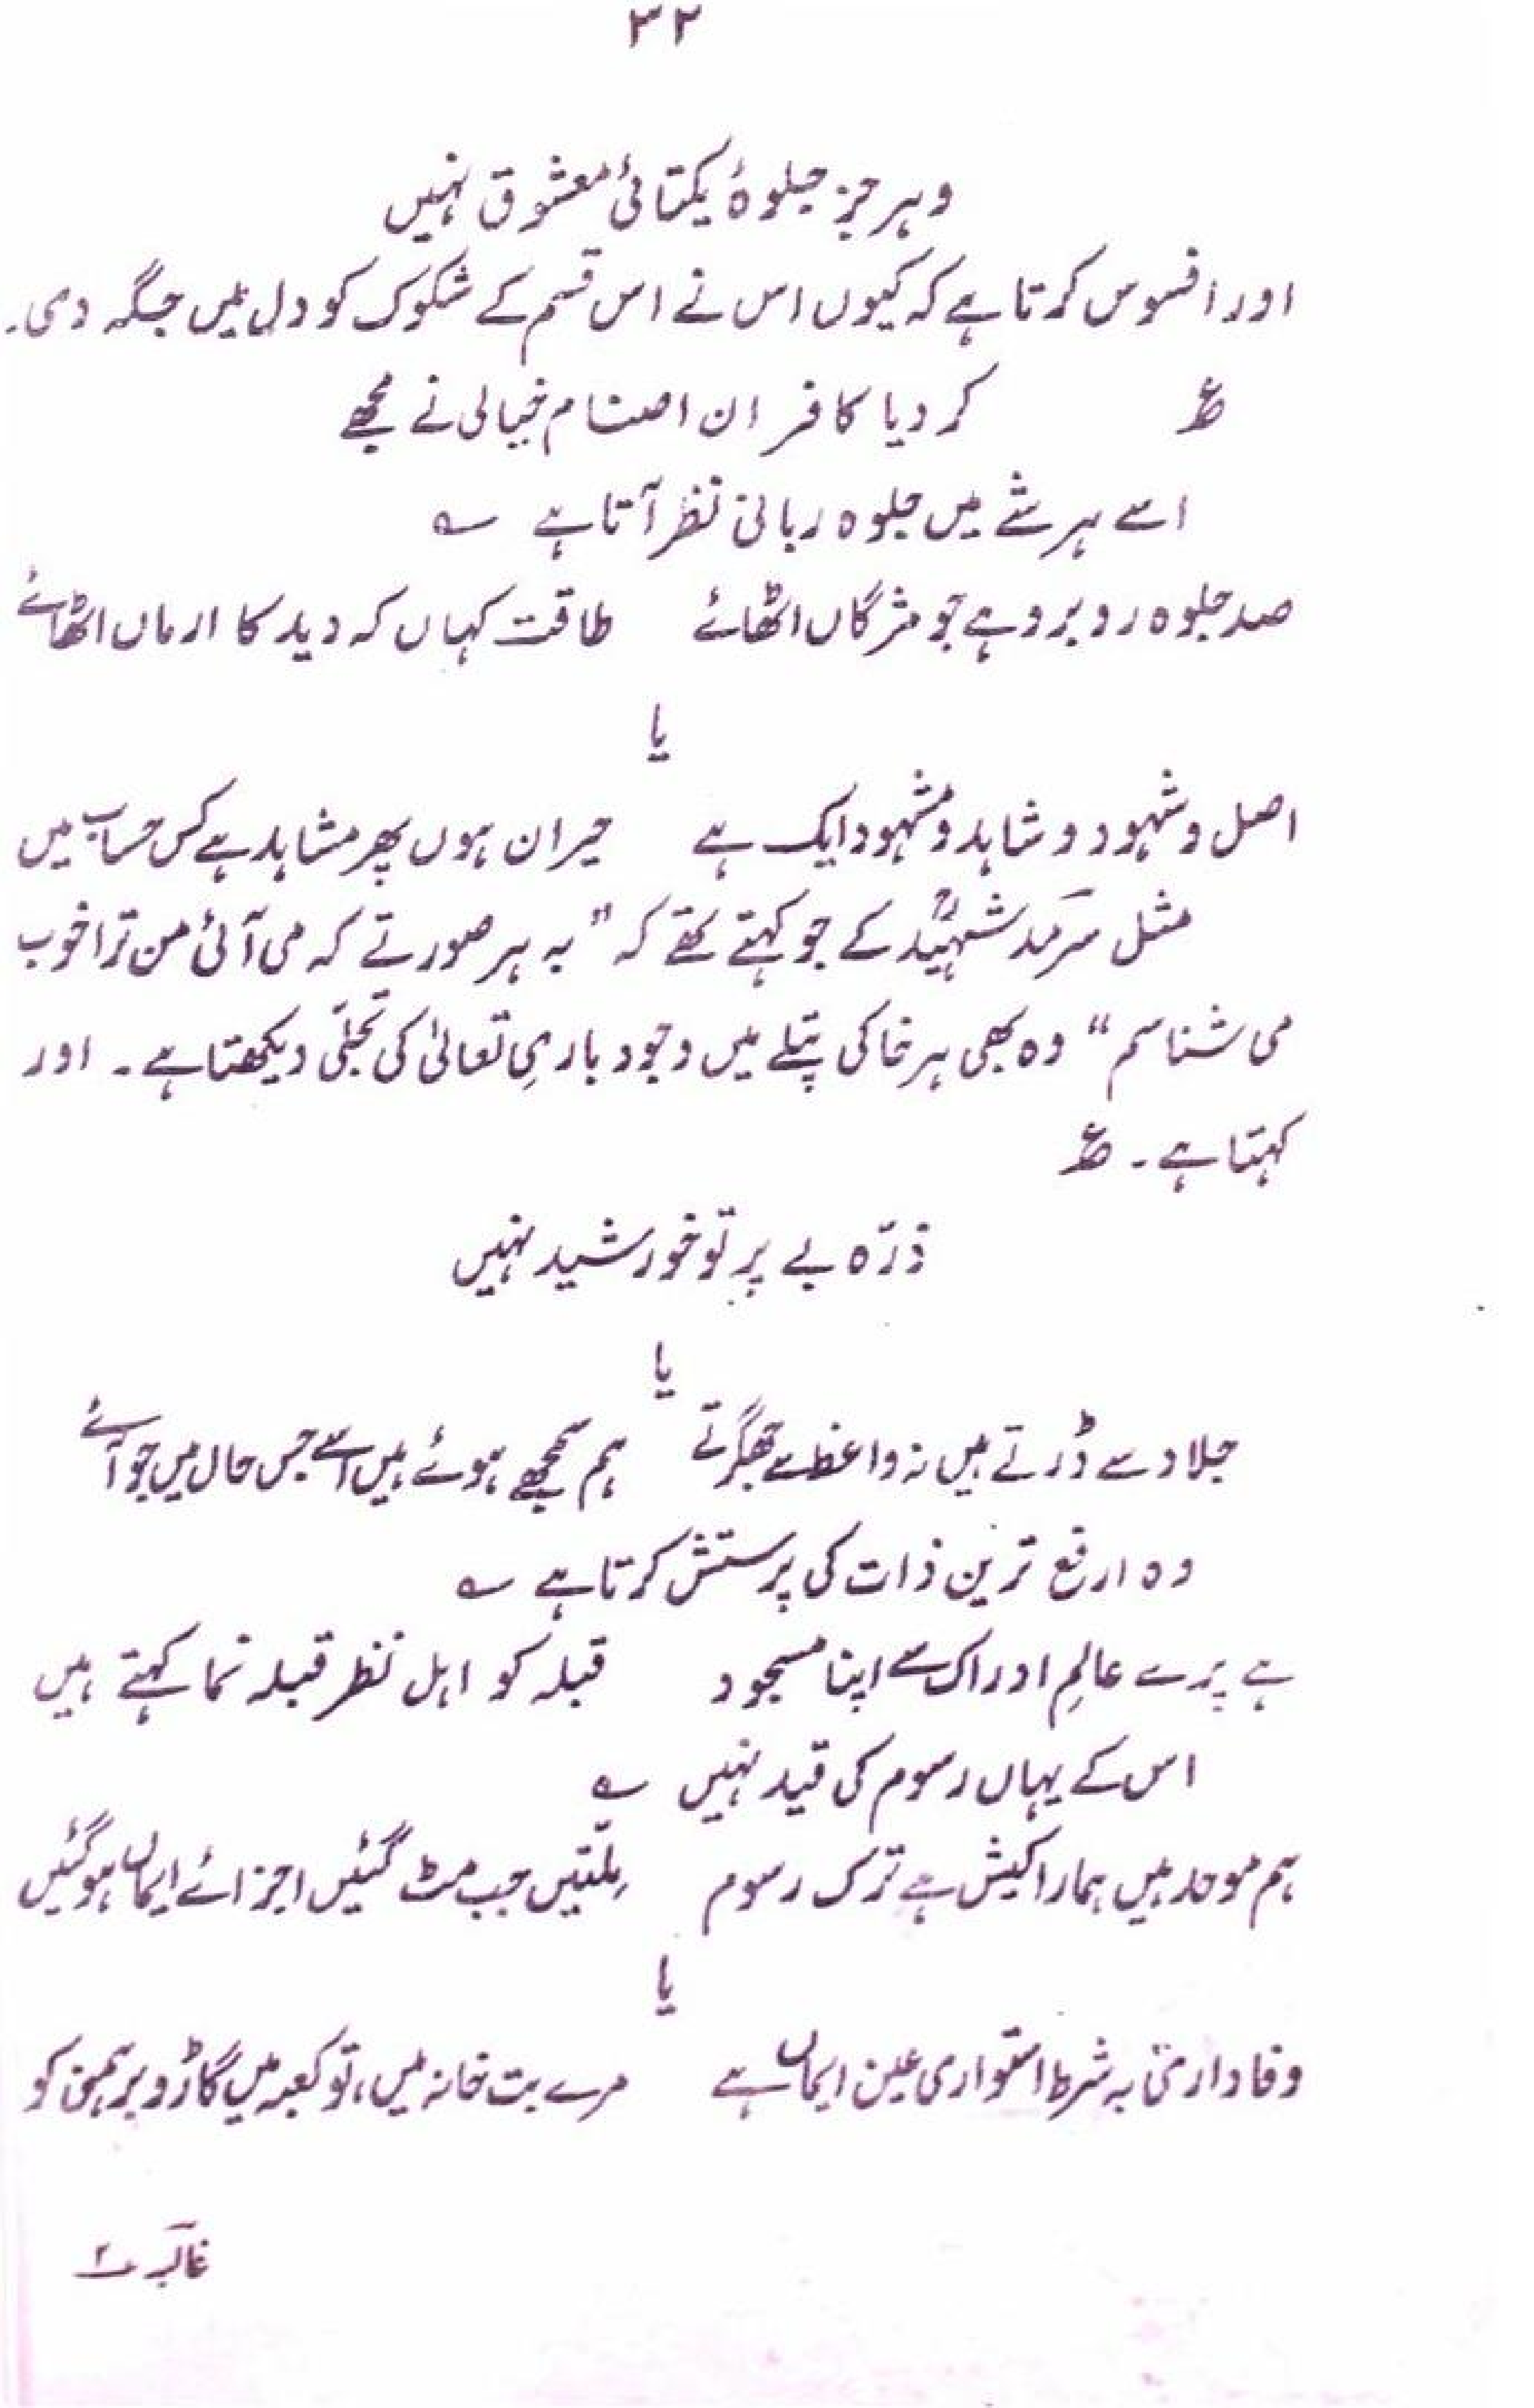 ۳۲
دہر جز جلوۂ یکتائیٔ معشوق نہیں
اور افسوس کرتا ہے کہ کیوں اس نے اس قسم کے شکوک کو دل میں جگہ دی۔
ع کر دیا کافر ان اصنام خیالی نے مجھے
اسے ہر شے میں جلوہ ربانی نظر آتا ہے ؎
صد جلوہ روبرو ہے جو مژگاں اٹھائے طاقت کہاں کہ دید کا ارماں اٹھائے
یا
اصل و شہود و شاہد و مشہود ایک ہے حیران ہوں پھر مشاہد ہے کس حساب میں
مثل سرمد شہیدؒ کے جو کہتے تھے کہ "بہ ہر صورتے کہ می آئی من ترا خوب
می شناسم" وہ بھی ہر خاکی پتلے میں وجود باریِ تعالیٰ کی تجلّی دیکھتا ہے۔ اور
کہتا ہے۔ ع
ذرّہ بے پرتو خورشید نہیں
یا
جلاد سے ڈرتے ہیں نہ واعظ سے جھگڑتے ہم سمجھے ہوئے ہیں اسے جس حال میں جو آئے
وہ ارفع ترین ذات کی پرستش کرتا ہے ؎
ہے پرے عالمِ ادراک سے اپنا مسجود قبلہ کو اہل نظر قبلہ نما کہتے ہیں
اس کے یہاں رسوم کی قید نہیں ؎
ہم موحد ہیں ہمارا کیش ہے ترک رسوم مِلّتیں جب مٹ گئیں اجزائے ایماں ہو گئیں
یا
وفاداری بہ شرط استواری عین ایماں ہے مرے بت خانہ میں، تو کعبہ میں گاڑو برہمن کو